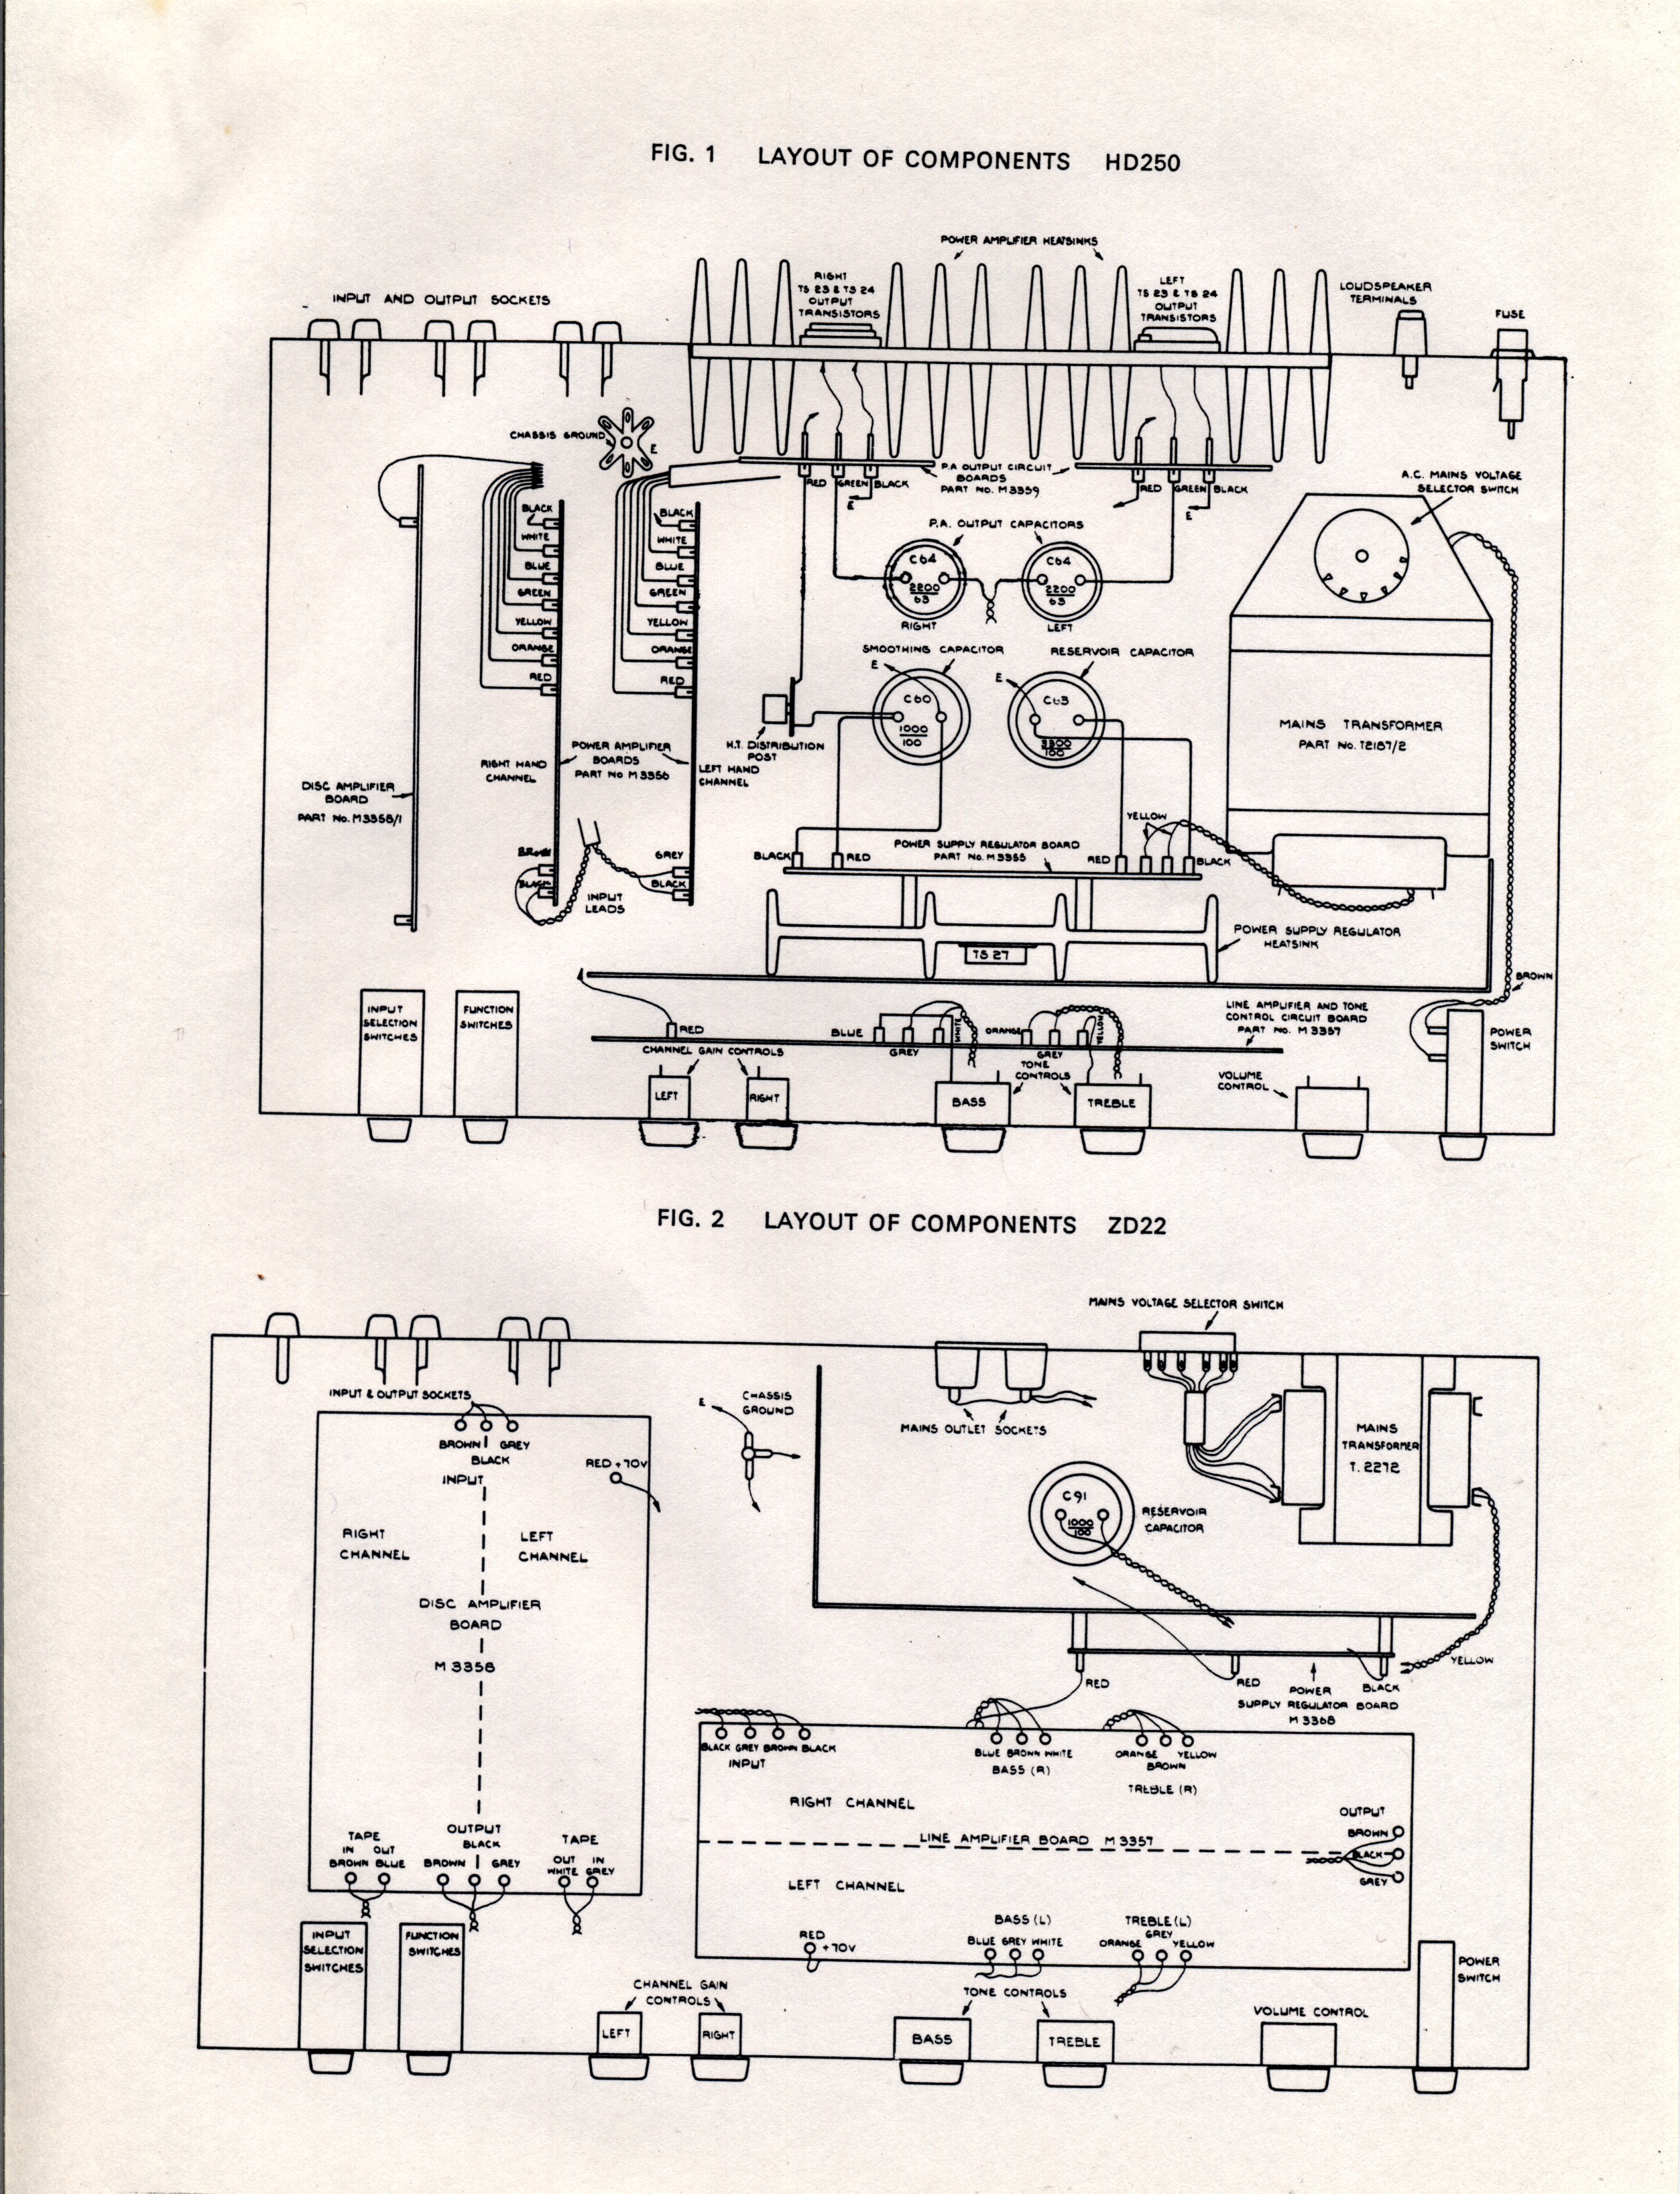 FIG. 1 LAYOUT OF COMPONENTS HD250
POWER AMPLIFIER HEATSINKS
INPUT AND OUTPUT SOCKETS
RIGHT
TS 23 & TS 24
OUTPUT
TRANSISTORS
LEFT
TS 23 & TS 24
OUTPUT
TRANSISTORS
LOUDSPEAKER
TERMINALS
FUSE
CHASSIS GROUND
E
RED GREEN BLACK
E
P.A OUTPUT CIRCUIT
BOARDS
PART No. M3359
RED GREEN BLACK
E
A.C. MAINS VOLTAGE
SELECTOR SWITCH
BLACK
WHITE
BLUE
GREEN
YELLOW
ORANGE
RED
BLACK
WHITE
BLUE
GREEN
YELLOW
ORANGE
RED
P.A. OUTPUT CAPACITORS
C64
2200
63
RIGHT
C64
2200
63
LEFT
SMOOTHING CAPACITOR
E
C60
1000
100
RESERVOIR CAPACITOR
E
C63
3300
100
MAINS TRANSFORMER
PART No. T2187/2
H.T. DISTRIBUTION
POST
RIGHT HAND
CHANNEL
POWER AMPLIFIER
BOARDS
PART No M3356
LEFT HAND
CHANNEL
DISC AMPLIFIER
BOARD
PART No. M3358/1
BROWN
BLACK
INPUT
LEADS
GREY
BLACK
BLACK
RED
POWER SUPPLY REGULATOR BOARD
PART No. M3365
YELLOW
RED
BLACK
POWER SUPPLY REGULATOR
HEATSINK
TS 27
BROWN
INPUT
SELECTION
SWITCHES
FUNCTION
SWITCHES
RED
BLUE
GREY
WHITE
ORANGE
GREY
YELLOW
LINE AMPLIFIER AND TONE
CONTROL CIRCUIT BOARD
PART No. M3357
POWER
SWITCH
CHANNEL GAIN CONTROLS
LEFT
RIGHT
TONE
CONTROLS
BASS
TREBLE
VOLUME
CONTROL
FIG. 2 LAYOUT OF COMPONENTS ZD22
MAINS VOLTAGE SELECTOR SWITCH
INPUT & OUTPUT SOCKETS
BROWN GREY
BLACK
INPUT
RED +70V
E
CHASSIS
GROUND
MAINS OUTLET SOCKETS
MAINS
TRANSFORMER
T. 2272
C91
1000
100
RESERVOIR
CAPACITOR
RIGHT
CHANNEL
LEFT
CHANNEL
DISC AMPLIFIER
BOARD
M 3358
RED
RED
POWER
SUPPLY REGULATOR BOARD
M 3368
BLACK
YELLOW
BLACK GREY BROWN BLACK
INPUT
BLUE BROWN WHITE
BASS (R)
ORANGE YELLOW
BROWN
TREBLE (R)
RIGHT CHANNEL
LINE AMPLIFIER BOARD M 3357
LEFT CHANNEL
OUTPUT
BROWN
BLACK
GREY
TAPE
IN OUT
BROWN BLUE
OUTPUT
BLACK
BROWN GREY
TAPE
OUT IN
WHITE GREY
RED
+70V
BASS (L)
BLUE GREY WHITE
TREBLE (L)
GREY
ORANGE YELLOW
INPUT
SELECTION
SWITCHES
FUNCTION
SWITCHES
CHANNEL GAIN
CONTROLS
LEFT
RIGHT
TONE CONTROLS
BASS
TREBLE
VOLUME CONTROL
POWER
SWITCH